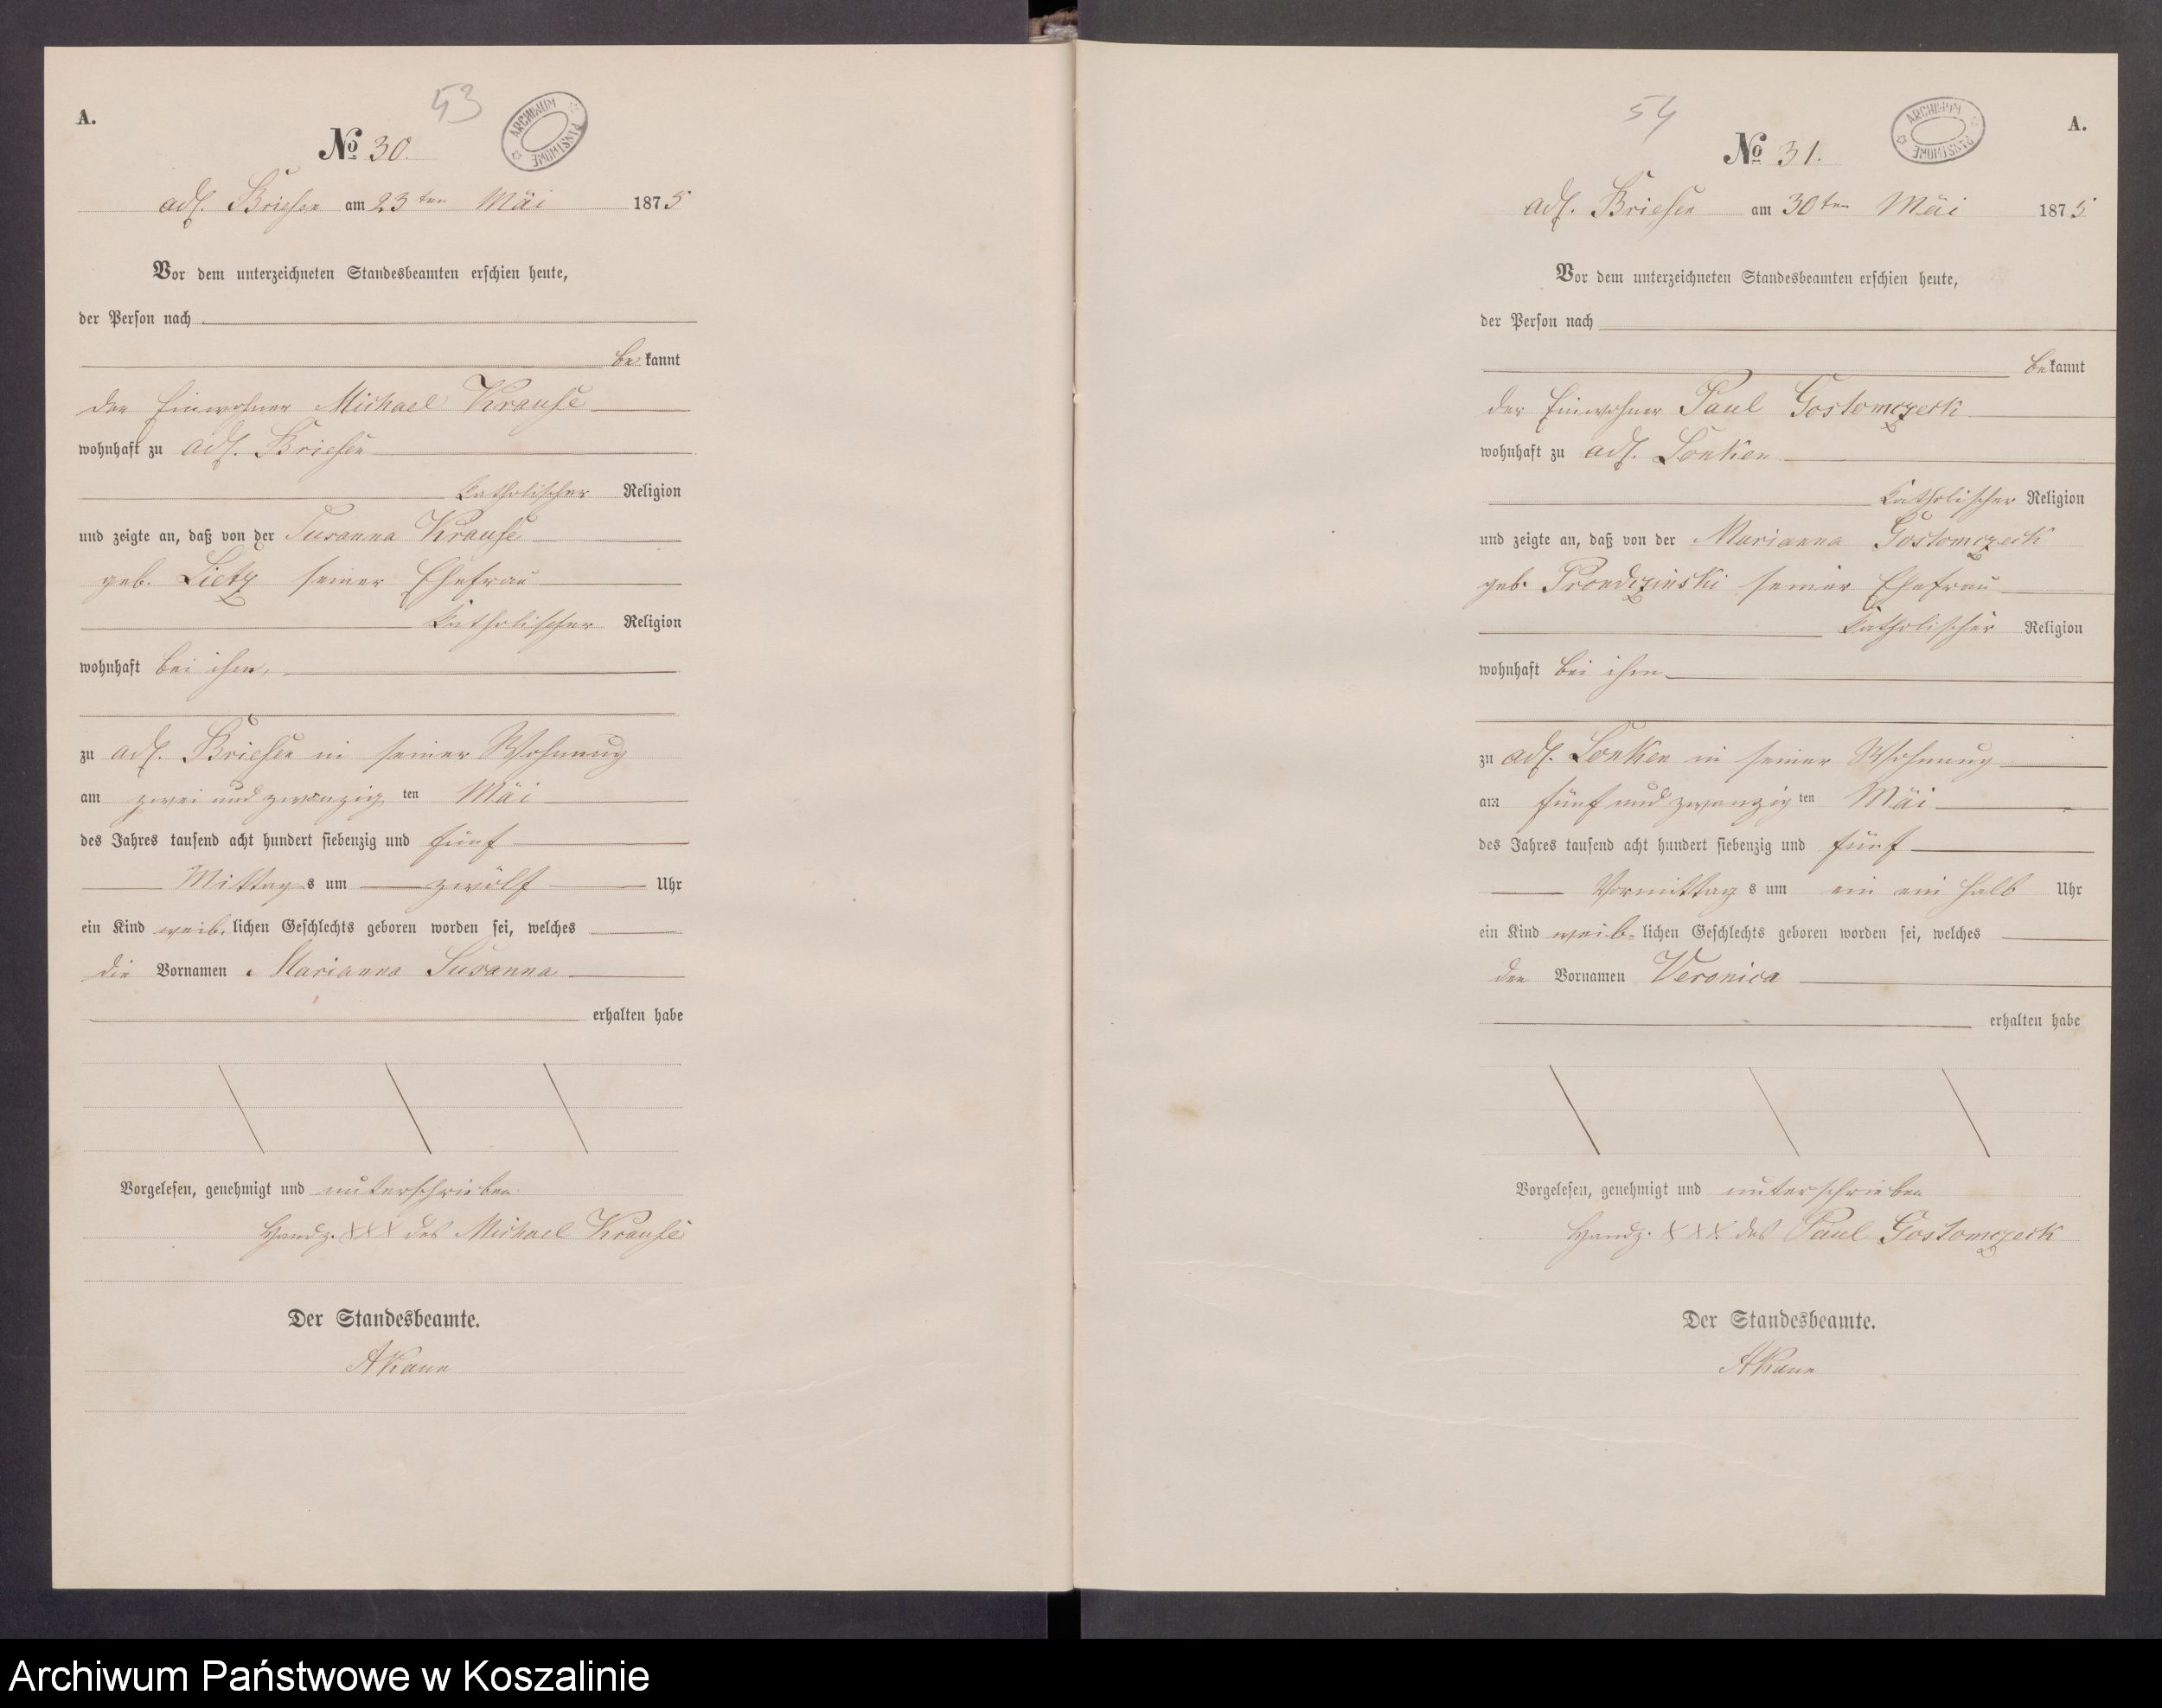 53
A.
ARCHIWUM PAŃSTWOWE
№ 30.
adl. Briesen am 23ten Mai 1875
Vor dem unterzeichneten Standesbeamten erschien heute,
der Person nach
bekannt
der Einwohner Michael Krause
wohnhaft zu adl. Briesen
katholischer Religion
und zeigte an, daß von der Susanna Krause
geb. Lietz seiner Ehefrau
katholischer Religion
wohnhaft bei ihm,
zu adl. Briesen in seiner Wohnung
am zwei und zwanzig ten Mai
des Jahres tausend acht hundert siebenzig und fünf
Mittags um zwölf Uhr
ein Kind weiblichen Geschlechts geboren worden sei, welches
die Vornamen Marianna Susanna
erhalten habe
Vorgelesen, genehmigt und unterschrieben
Handz. XXX des Michael Krause
Der Standesbeamte.
AKaun
54
ARCHIWUM PAŃSTWOWE
A.
№ 31.
adl. Briesen am 30ten Mai 1875
Vor dem unterzeichneten Standesbeamten erschien heute,
der Person nach
bekannt
der Einwohner Paul Gostomczeck
wohnhaft zu adl. Lonken
katholischer Religion
und zeigte an, daß von der Marianna Gostomczeck
geb. Prondzinski seiner Ehefrau
katholischer Religion
wohnhaft bei ihm
zu adl. Lonken in seiner Wohnung
am fünf und zwanzig ten Mai
des Jahres tausend acht hundert siebenzig und fünf
Vormittags um ein ein halb Uhr
ein Kind weiblichen Geschlechts geboren worden sei, welches
den Vornamen Veronica
erhalten habe
Vorgelesen, genehmigt und unterschrieben
Handz. XXX des Paul Gostomczeck
Der Standesbeamte.
AKaun
Archiwum Państwowe w Koszalinie